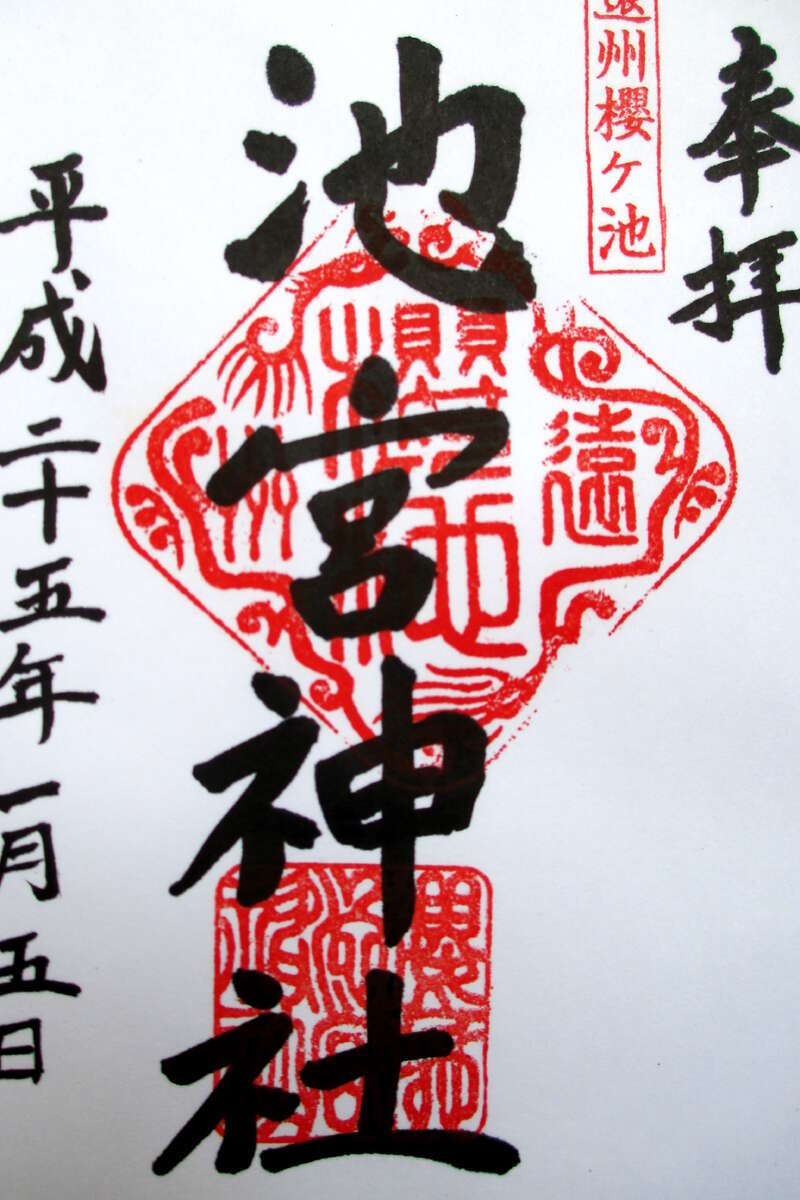 奉拝
遠州櫻ケ池
池宮神社
遠州
櫻池
平成二十五年一月五日